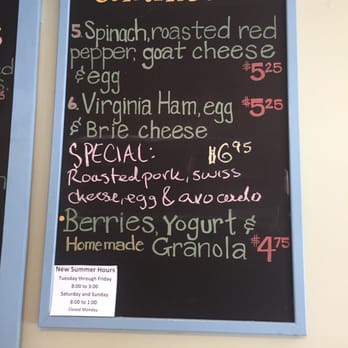 5. Spinach, roasted red
pepper, goat cheese
& egg $5.25
6. Virginia Ham, egg $5.25
& Brie cheese
SPECIAL: $6.95
Roasted pork, swiss
cheese, egg & avocado
Berries, Yogurt &
Homemade Granola $4.75
New Summer Hours
Tuesday through Friday
8:00 to 3:00
Saturday and Sunday
8:00 to 1:00
Closed Monday